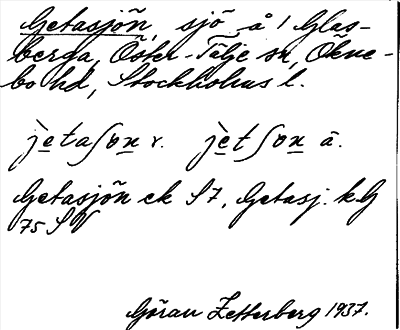 Getasjön, sjö å 1 Glas-
berga, Öster-Tälje sn, Ökne-
bo hd, Stockholms l.
j̀e̲taʃøn̲ r. jètʃøn̲ ä.
Getasjön ek S 7, Getasj. kG
75 SV
Göran Zetterberg 1937.